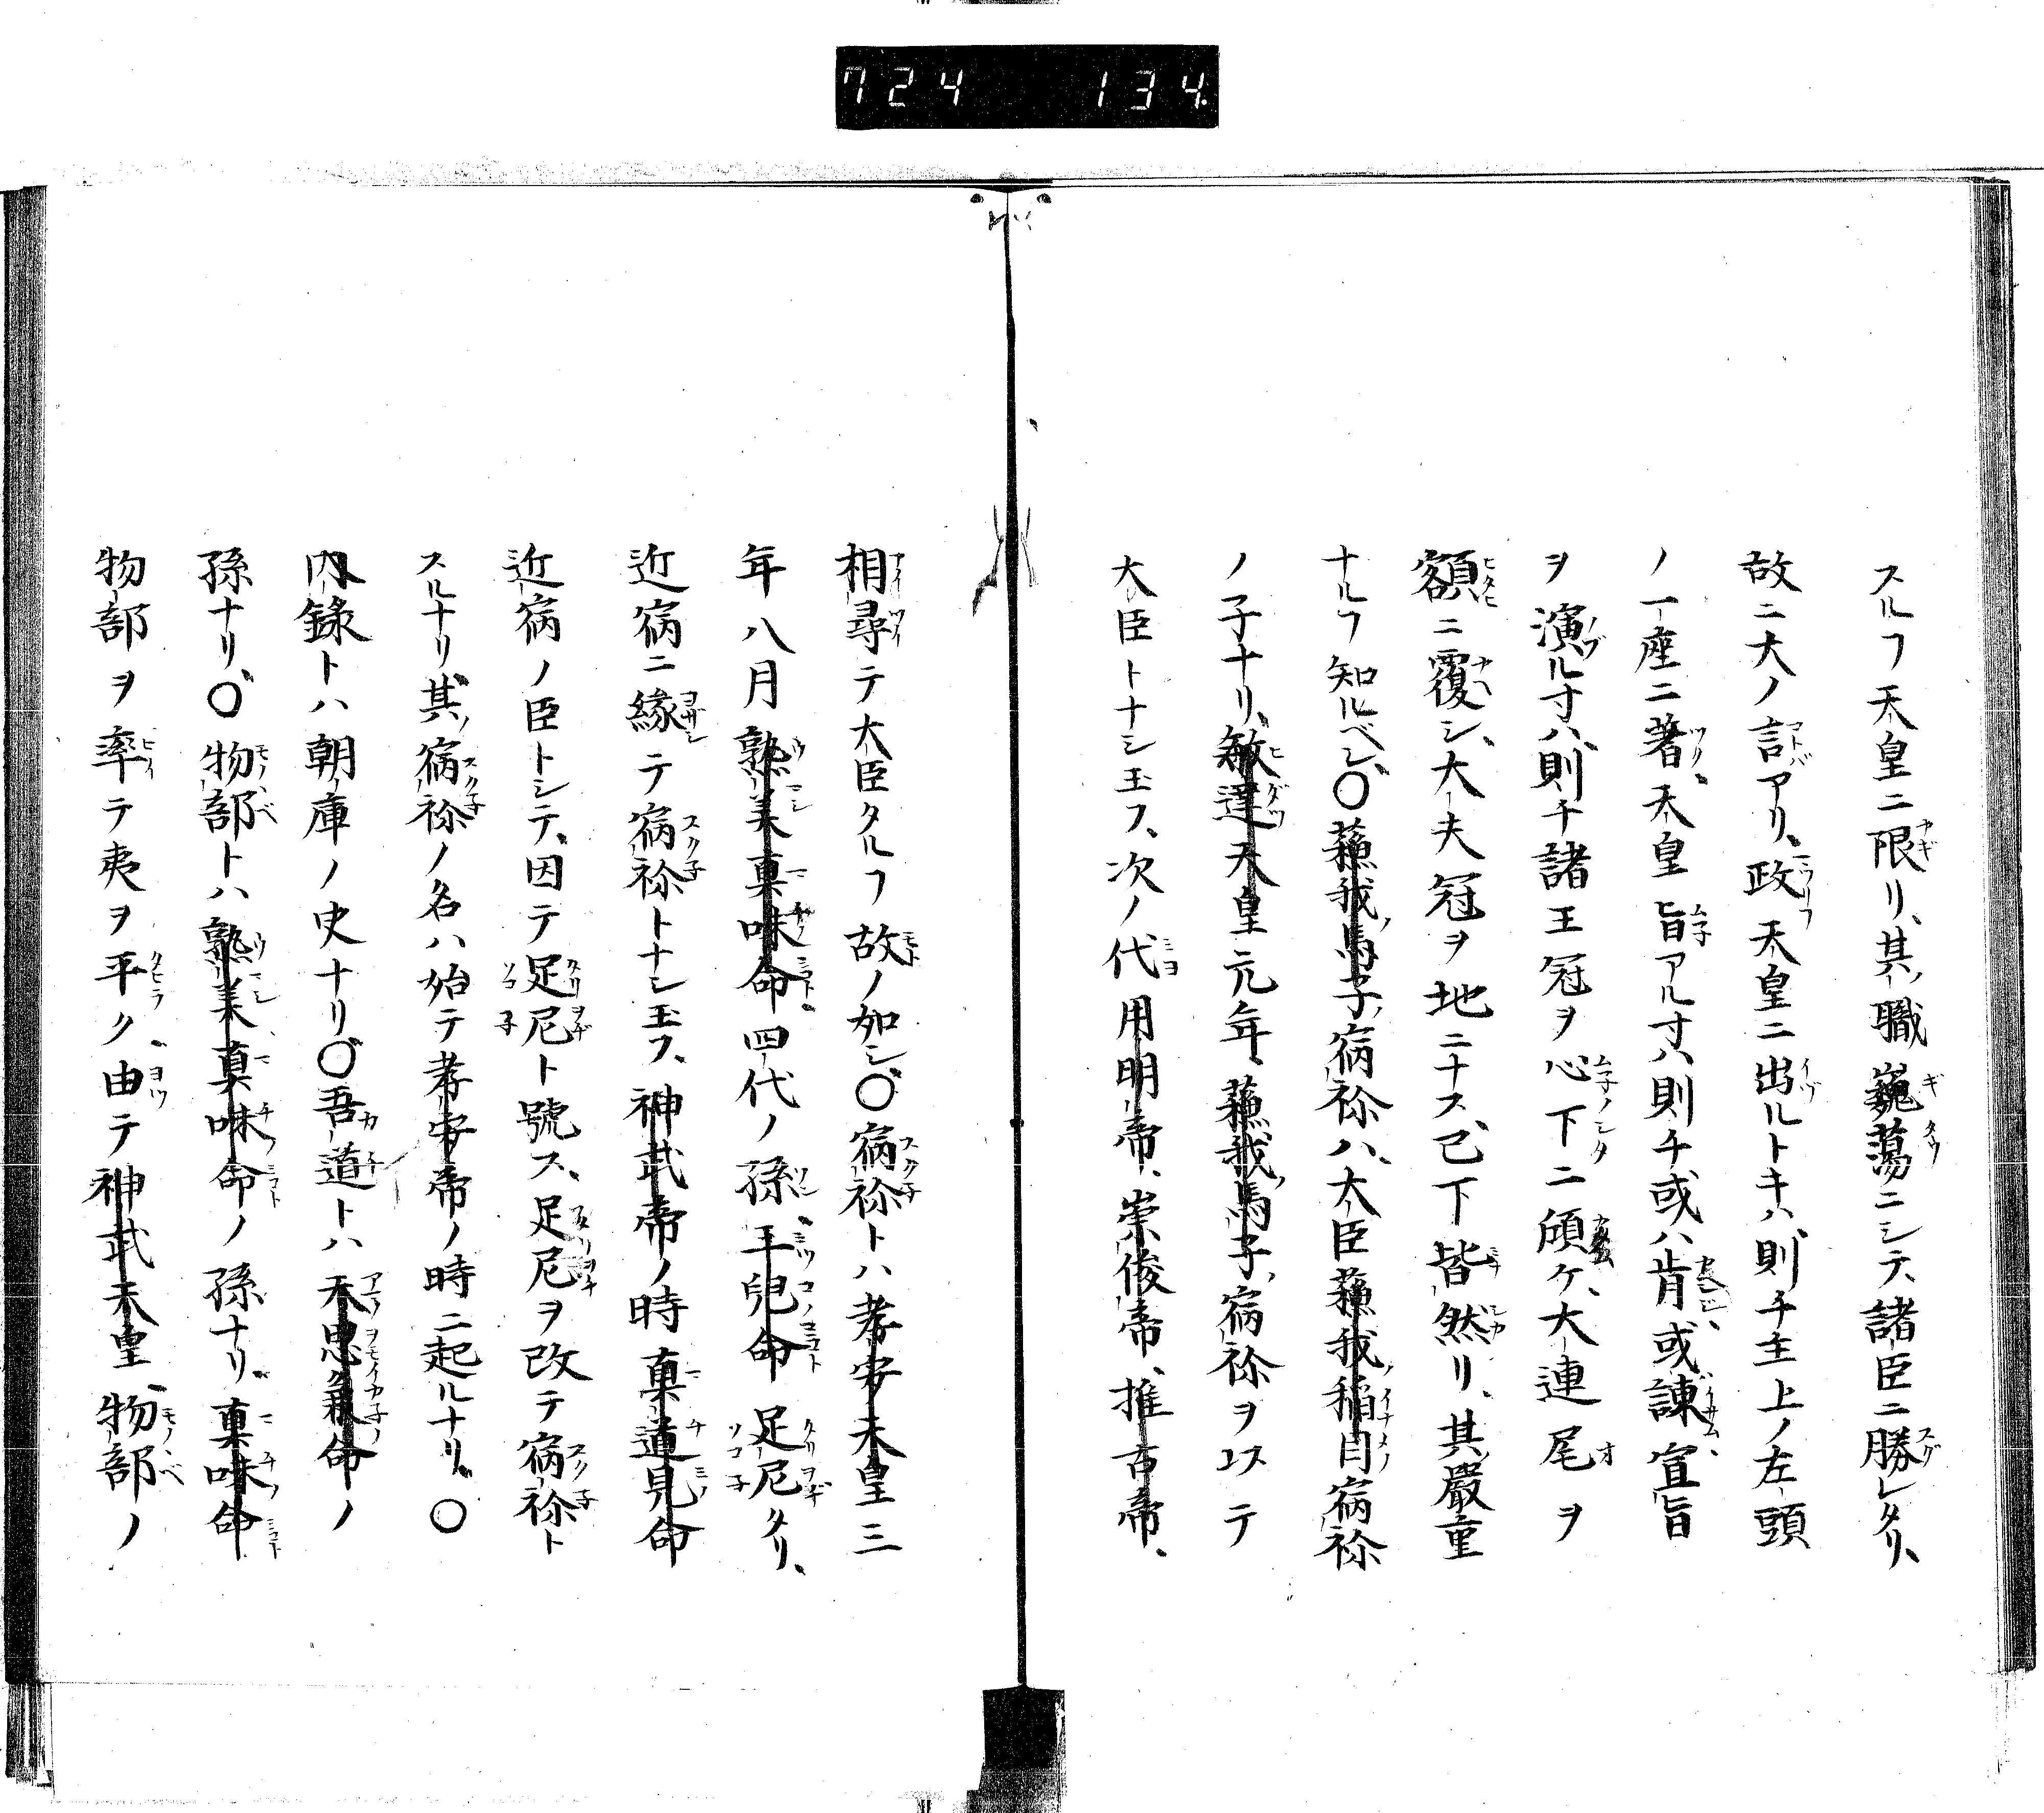 724 134
スルヿ天皇ニ限リ、其職巍蕩ニシテ、諸臣ニ勝レタリ、
故ニ大ノ言アリ、政天皇ニ出ルトキハ、則チ主上ノ左頭
ノ一座ニ著、天皇旨アル寸ハ則チ或ハ肯、或諫、宣旨
ヲ演ル寸ハ、則チ諸王冠ヲ心下ニ頎ケ、大連尾ヲ
額ニ覆シ、大夫冠ヲ地ニナス、已下皆然リ、其嚴重
ナルヿ知ルベシ、〇蘓我馬子宿祢ハ、大臣蘓我稲目宿祢
ノ子ナリ、敏達天皇元年、蘓我馬子宿祢ヲ以テ
大臣トナシ玉フ、次ノ代用明帝、崇俊帝、推古帝、
相尋テ大臣タルヿ故ノ如シ、〇宿祢トハ孝安天皇三
年八月熟美眞味命四代ノ孫、王兒命足尼タリ、
近宿ニ緣テ宿祢トナシ玉フ、神武帝ノ時眞道見命
近宿ノ臣トシテ、因テ足尼ト號ス、足尼ヲ改テ宿祢ト
スルナリ、其宿祢ノ名ハ始テ孝安帝ノ時ニ起ルナリ、〇
內錄トハ朝庫ノ史ナリ、〇吾道トハ天思兼命ノ
孫ナリ、〇物部トハ熟美眞味命ノ孫ナリ、眞味命
物部ヲ率テ夷ヲ平ク、由テ神武天皇、物部ノ